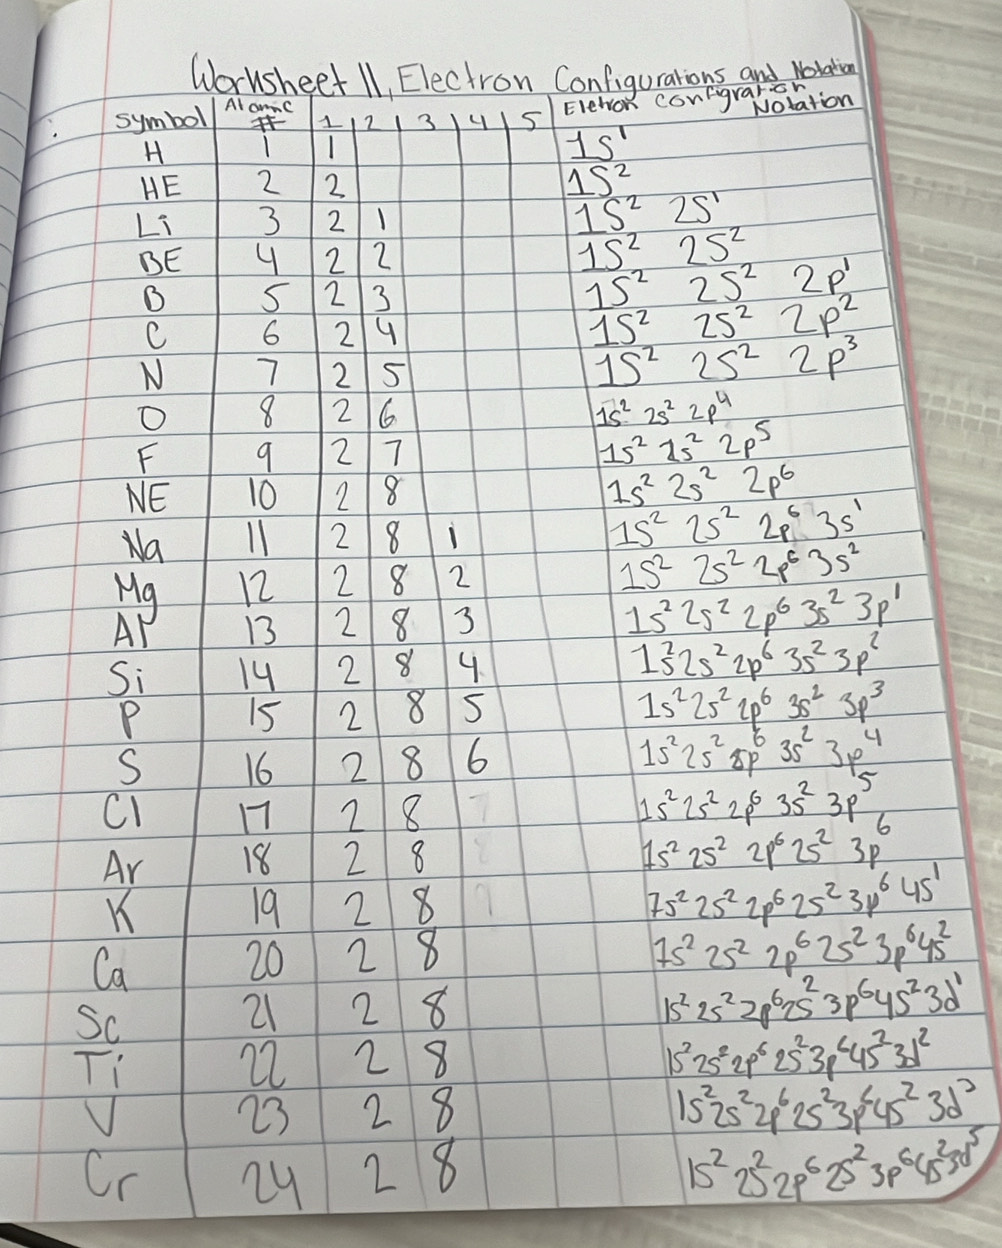 Worksheet 11, Electron Configurations and Notation
Symbol Atomic # 1 2 3 4 5 Eletron configration Notation
H 1 1 1s¹
HE 2 2 1S²
Li 3 2 1 1S² 2S¹
BE 4 2 2 1S² 2S²
B 5 2 3 1S² 2S² 2p¹
C 6 2 4 1S² 2S² 2p²
N 7 2 5 1S² 2S² 2p³
O 8 2 6 1s² 2s² 2p⁴
F 9 2 7 1s² 2s² 2p⁵
NE 10 2 8 1s² 2s² 2p⁶
Na 11 2 8 1 1S² 2S² 2p⁶ 3s¹
Mg 12 2 8 2 1S² 2s² 2p⁶ 3s²
Al 13 2 8 3 1s² 2s² 2p⁶ 3s² 3p¹
Si 14 2 8 4 1s² 2s² 2p⁶ 3s² 3p²
P 15 2 8 5 1s² 2s² 2p⁶ 3s² 3p³
S 16 2 8 6 1s² 2s² p⁶ 3s² 3p⁴
Cl 17 2 8 7 1s² 2s² 2p⁶ 3s² 3p⁵
Ar 18 2 8 1s² 2s² 2p⁶ 2s² 3p⁶
K 19 2 8 1s² 2s² 2p⁶ 2s² 3p⁶ 4s¹
Ca 20 2 8 1s² 2s² 2p⁶ 2s² 3p⁶ 4s²
Sc 21 2 8 1s² 2s² 2p⁶ 2s² 3p⁶ 4s² 3d¹
Ti 22 2 8 1s² 2s² 2p⁶ 2s² 3p⁶ 4s² 3d²
V 23 2 8 1s² 2s² 2p⁶ 2s² 3p⁶ 4s² 3d³
Cr 24 2 8 1s² 2s² 2p⁶ 2s² 3p⁶ 4s² 3d⁵